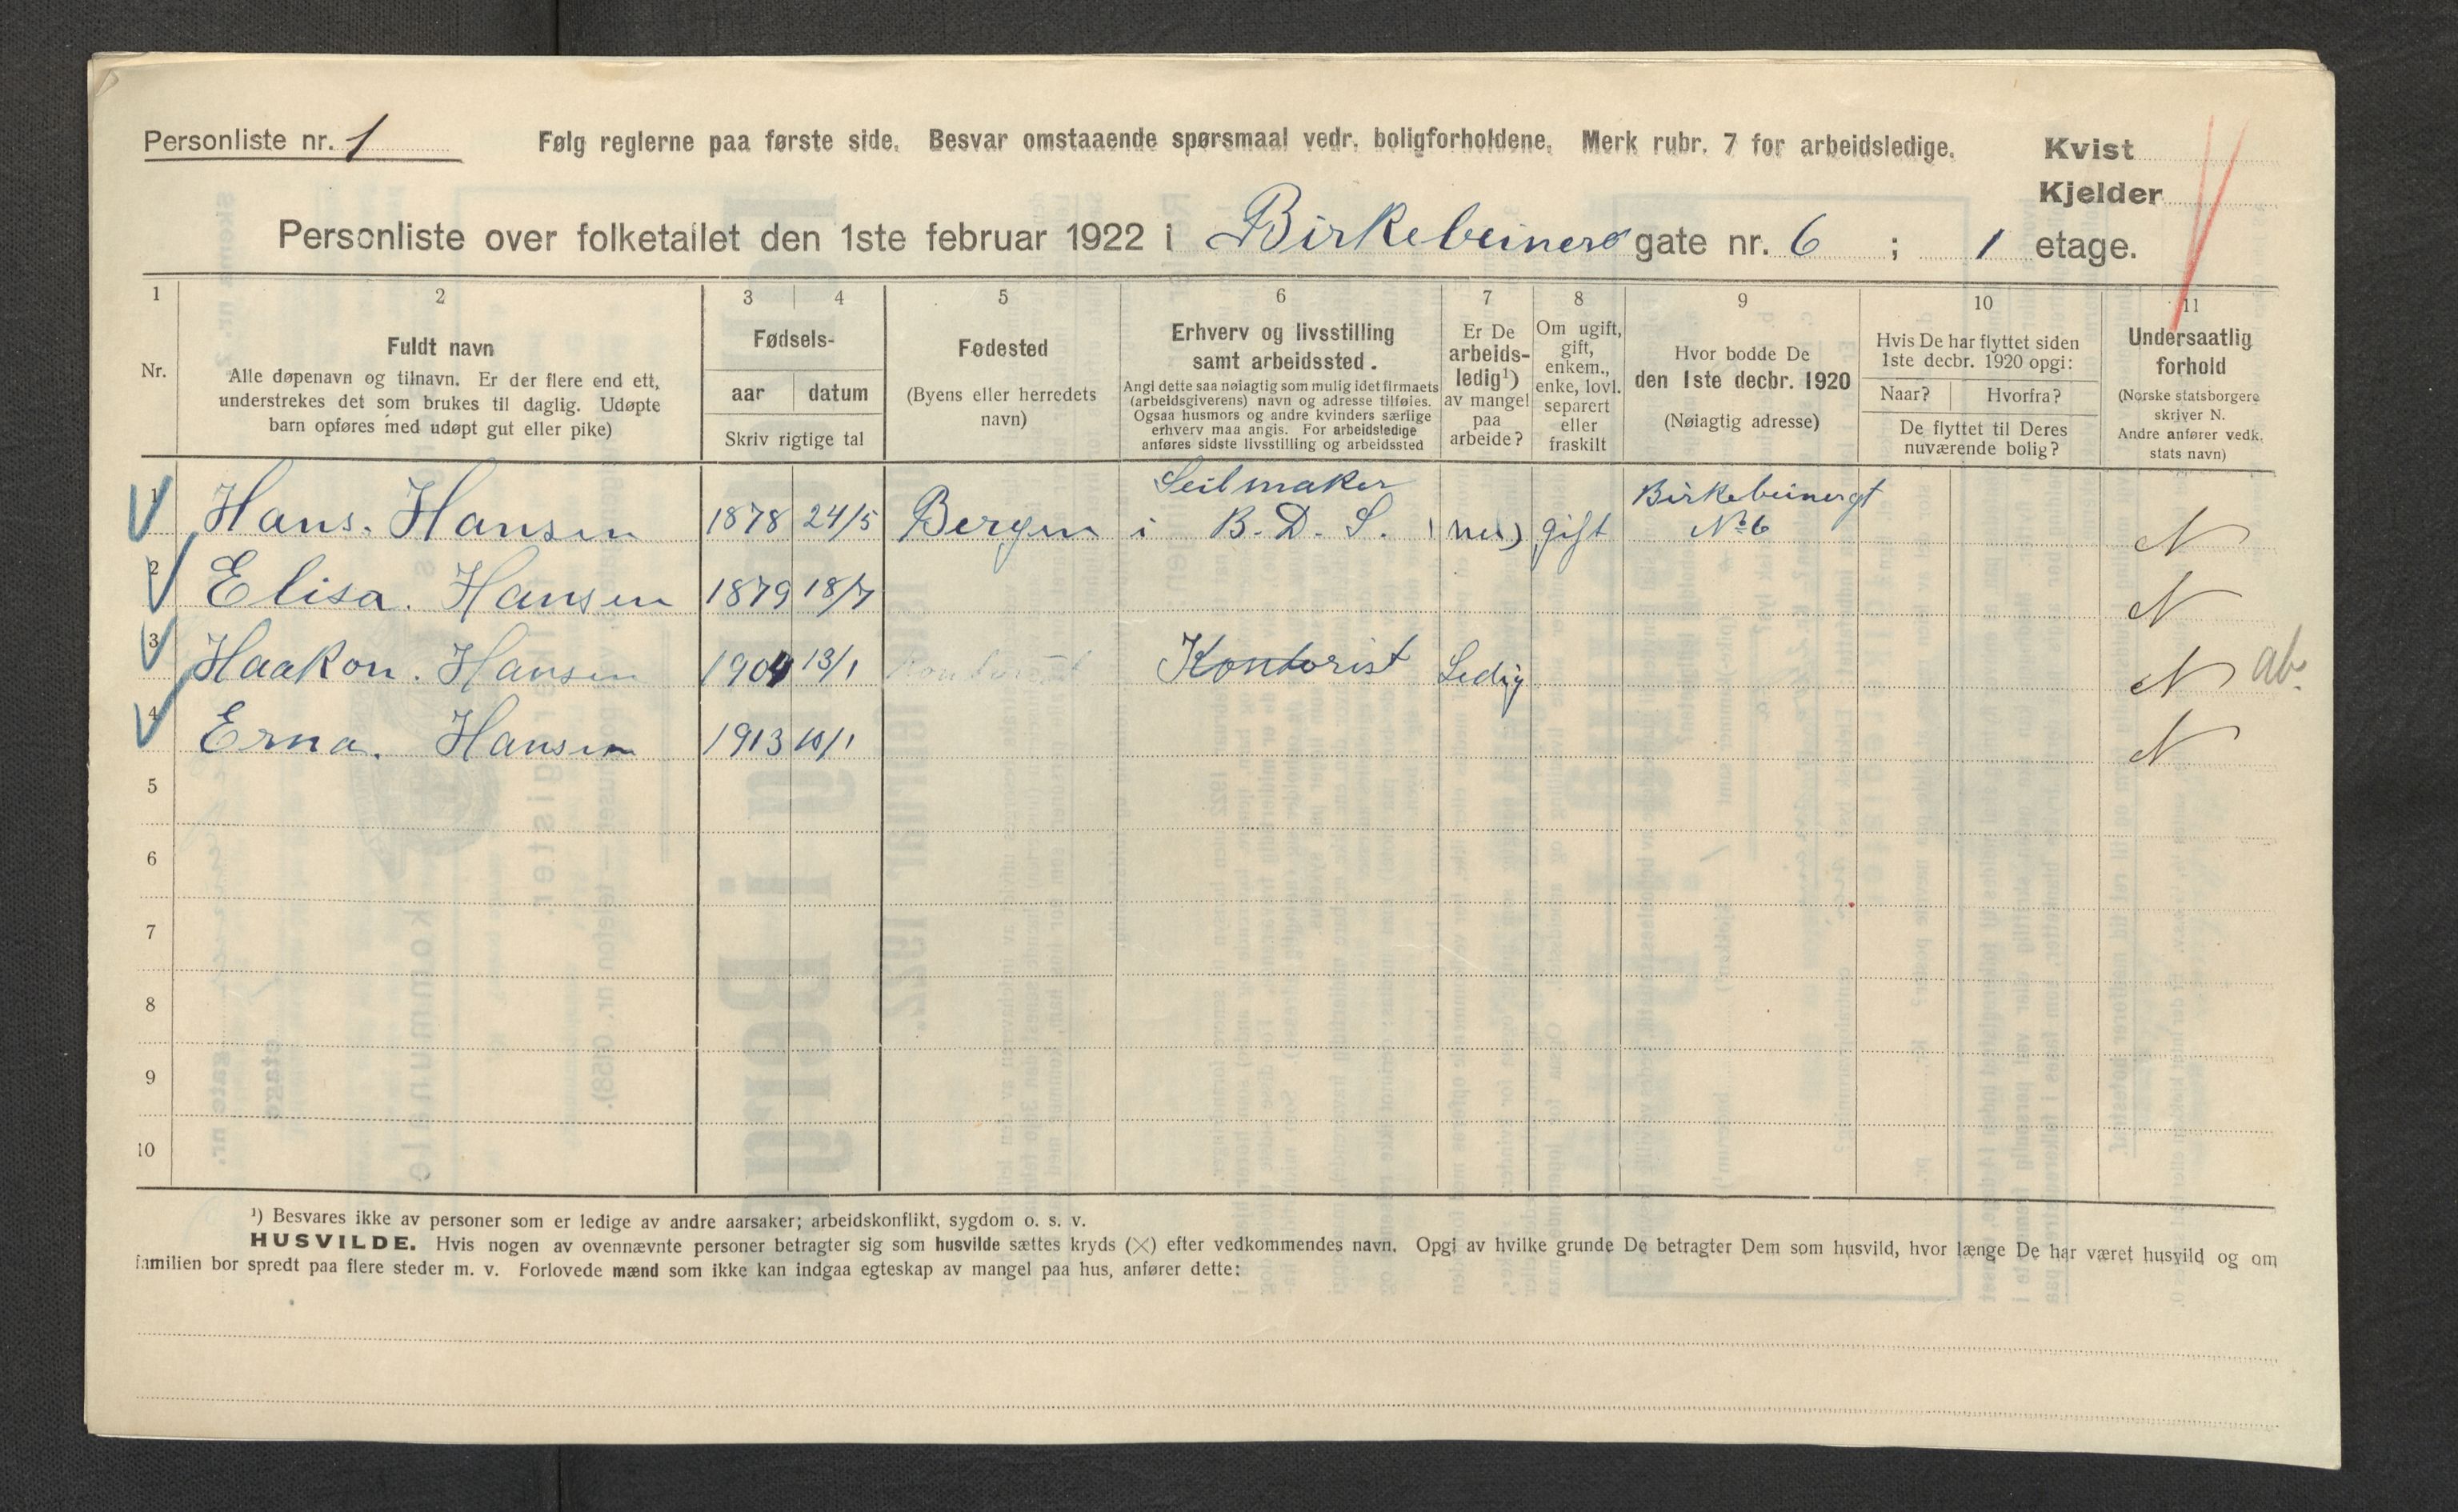 Personliste nr. 1
Følg reglerne paa første side. Besvar omstaaende spørsmaal vedr. boligforholdene. Merk rubr. 7 for arbeidsledige.
Kvist
Kjelder
Personliste over folketallet den 1ste februar 1922 i Birkebeiners gate nr. 6 ; 1 etage.
1 2 3 4 5 6 7 8 9 10 11
Nr.
Fuldt navn
Alle døpenavn og tilnavn. Er der flere end ett,
understrekes det som brukes til daglig. Udøpte
barn opføres med udøpt gut eller pike)
Fødsels-
aar datum
Skriv rigtige tal
Fødested
(Byens eller herredets
navn)
Erhverv og livsstilling
samt arbeidssted.
Angi dette saa nøiagtig som mulig idet firmaets
(arbeidsgiverens) navn og adresse tilføies.
Ogsaa husmors og andre kvinders særlige
erhverv maa angis. For arbeidsledige
anføres sidste livsstilling og arbeidssted
Er De
arbeids-
ledig¹)
av mangel
paa
arbeide?
Om ugift,
gift,
enkem.,
enke, lovl.
separert
eller
fraskilt
Hvor bodde De
den 1ste decbr. 1920
(Nøiagtig adresse)
Hvis De har flyttet siden
1ste decbr. 1920 opgi:
Naar? Hvorfra?
De flyttet til Deres
nuværende bolig?
Undersaatlig
forhold
(Norske statsborgere
skriver N.
Andre anfører vedk.
stats navn)
Seilmaker Birkebeinergt
1 Hans. Hansen 1878 24/5 Bergen i B. D. S. nei gift No 6 N
2 Elisa. Hansen 1879 18/7 N
3 Haakon. Hansen 1904 13/1 Kontorist Kontorist Ledig N ab.
4 Erna. Hansen 1913 10/1 N
5
6
7
8
9
10
¹) Besvares ikke av personer som er ledige av andre aarsaker; arbeidskonflikt, sygdom o. s. v.
HUSVILDE. Hvis nogen av ovennævnte personer betragter sig som husvilde sættes kryds (×) efter vedkommendes navn. Opgi av hvilke grunde De betragter Dem som husvild, hvor længe De har været husvild og om
familien bor spredt paa flere steder m. v. Forlovede mænd som ikke kan indgaa egteskap av mangel paa hus, anfører dette: